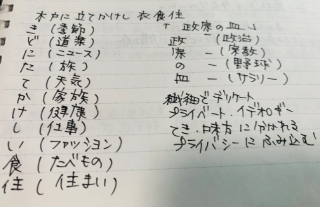 木戸に立てかけし 衣食住
き(季節)
ど(道楽)
に(ニュース)
た(旅)
て(天気)
か(家族)
け(健康)
し(仕事)
い(ファッション)
食(たべもの)
住(住まい)
「政宗の皿」
政 ー (政治)
宗 ー (宗教)
の ー (野球)
皿 ー (サラリー)
繊細でデリケート
プライベート、イデオロギー
てき、味方に分かれる
プライバシーにふみ込む